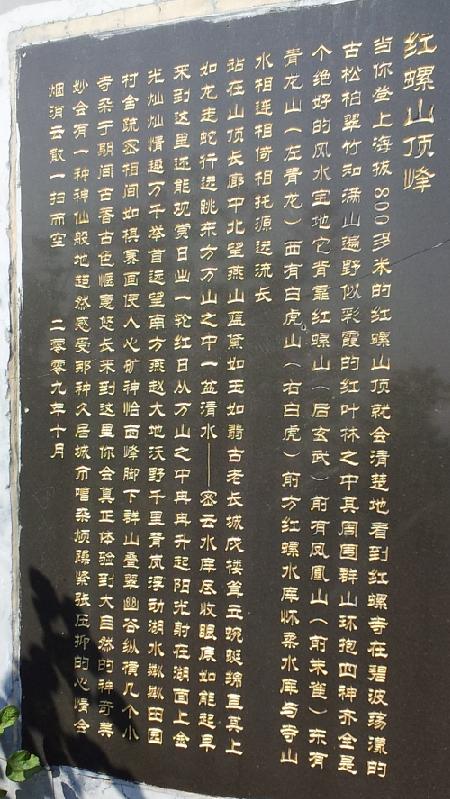 红螺山顶峰
当你登上海拔800多米的红螺山顶就会清楚地看到红螺寺在碧波荡漾的
古松柏翠竹和满山遍野似彩霞的红叶林之中其周围群山环抱四神齐全是
个绝好的风水宝地它背靠红螺山（后玄武）前有凤凰山（前朱雀）东有
青龙山（左青龙）西有白虎山（右白虎）前方红螺水库怀柔水库与寺山
水相连相倚相托源远流长
站在山顶长廊中北望燕山蓝黛如玉如翡古老长城戍楼耸立蜿蜒绵亘其上
如龙走蛇行远眺东方万山之中一盆清水——密云水库尽收眼底如能起早
来到这里还能观赏日出一轮红日从万山之中冉冉升起阳光射在湖面上金
光灿灿情趣万千举首远望南方燕赵大地沃野千里青岚浮动湖水粼粼田园
村舍疏密相间如棋裹面使人心旷神怡西峰脚下群山叠翠幽谷纵横几个小
寺杂于期间古香古色惬意悠长来到这里你会真正体验到大自然的神奇美
妙会有一种神仙般地超然感受那种久居城市嘈杂烦躁紧张压抑的心情会
烟消云散一扫而空
二零零九年十月